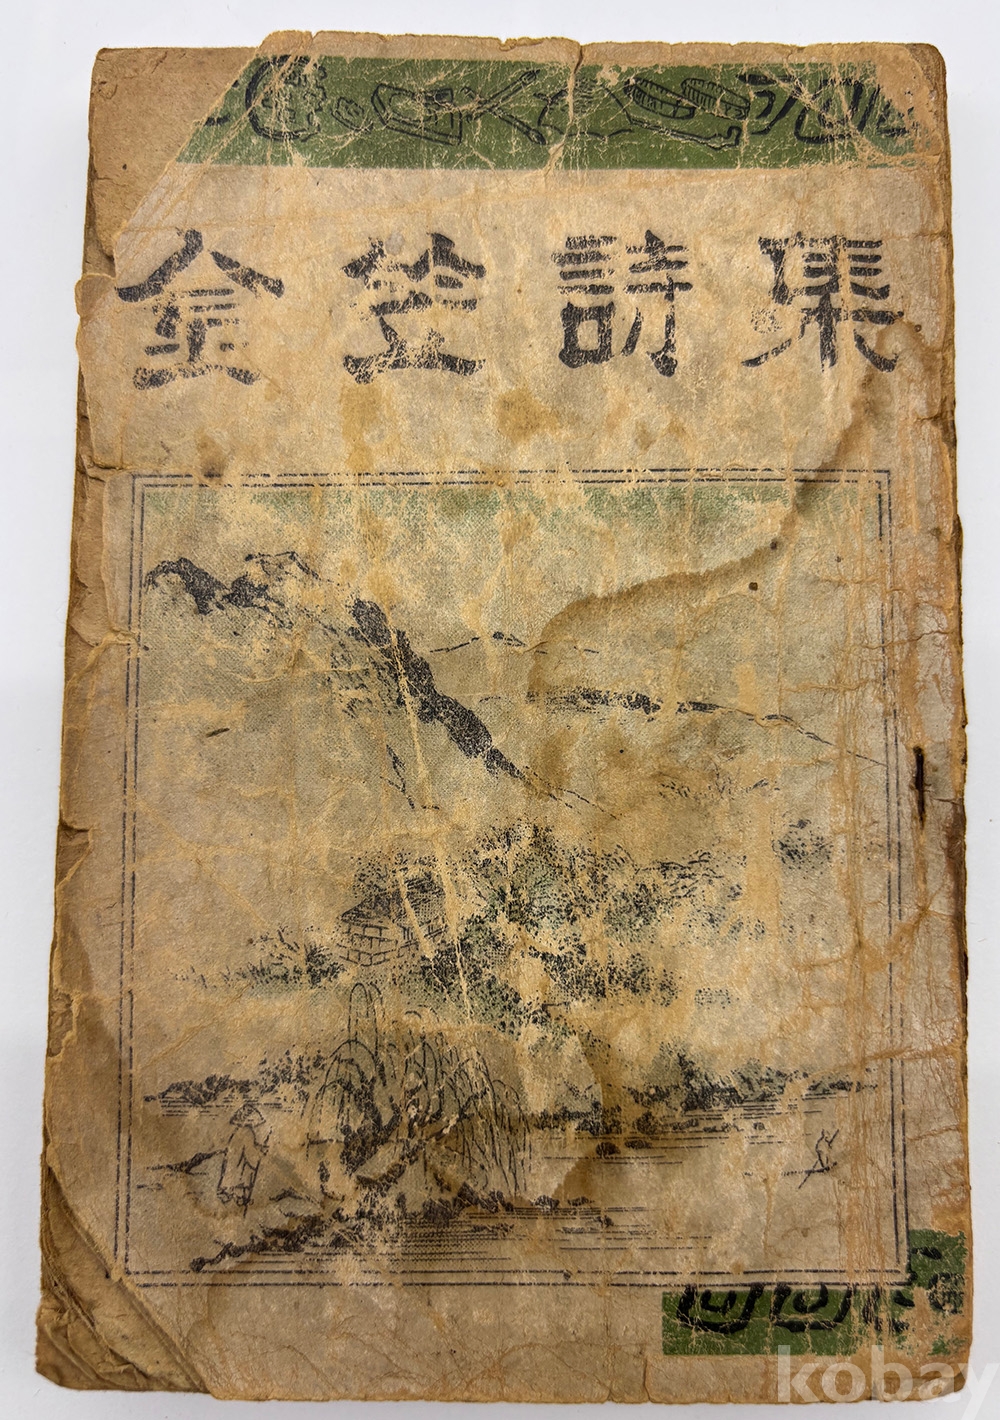 金笠詩集
kobay